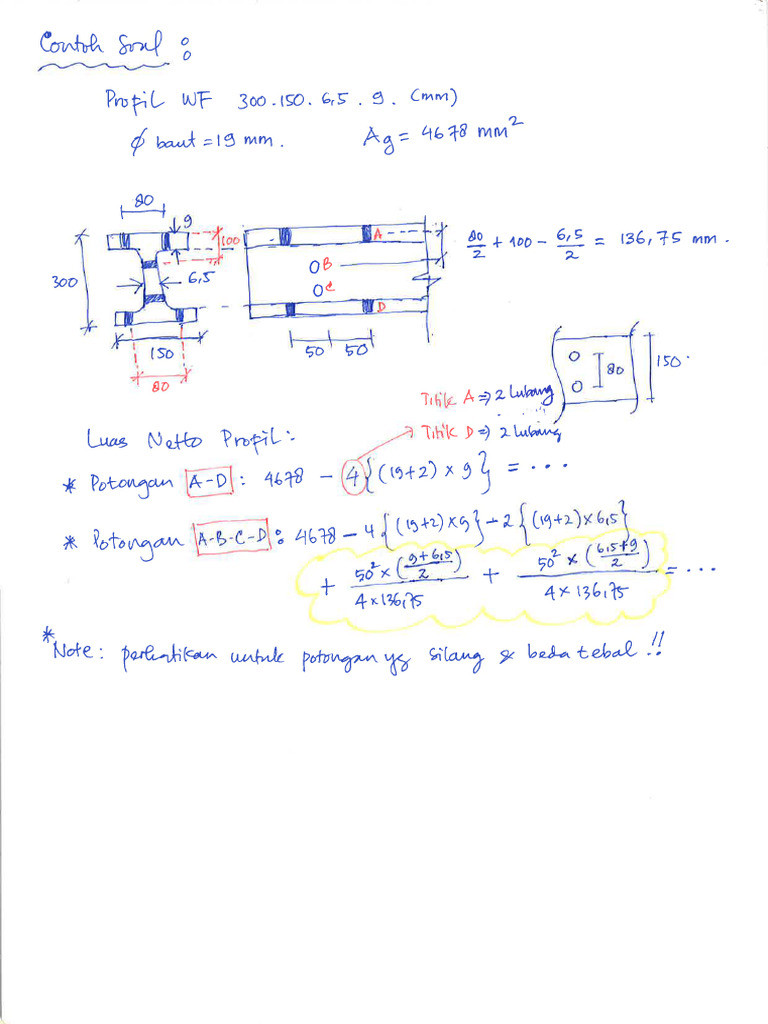 Contoh Soal :
Profil WF 300.150.6,5.9. (mm)
ϕ baut = 19 mm. Ag = 4678 mm²
80
9
100
300
6,5
150
80
A
B
C
D
50 50
80/2 + 100 - 6,5/2 = 136,75 mm.
80
150.
Titik A => 2 lubang
Titik D => 2 lubang
Luas Netto Profil :
* Potongan A-D : 4678 - 4{(19+2) x 9} = ...
* Potongan A-B-C-D : 4678 - 4{(19+2) x 9} - 2{(19+2) x 6,5}
+ 50² x ((9+6,5)/2) / 4 x 136,75 + 50² x ((6,5+9)/2) / 4 x 136,75 = ...
* Note : perhatikan untuk potongan yg silang & beda tebal !!